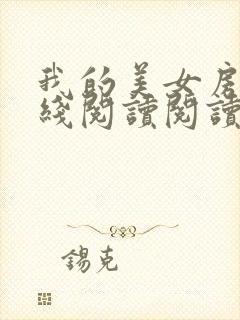 我的美女房
綫閱讀閱讀
錫克